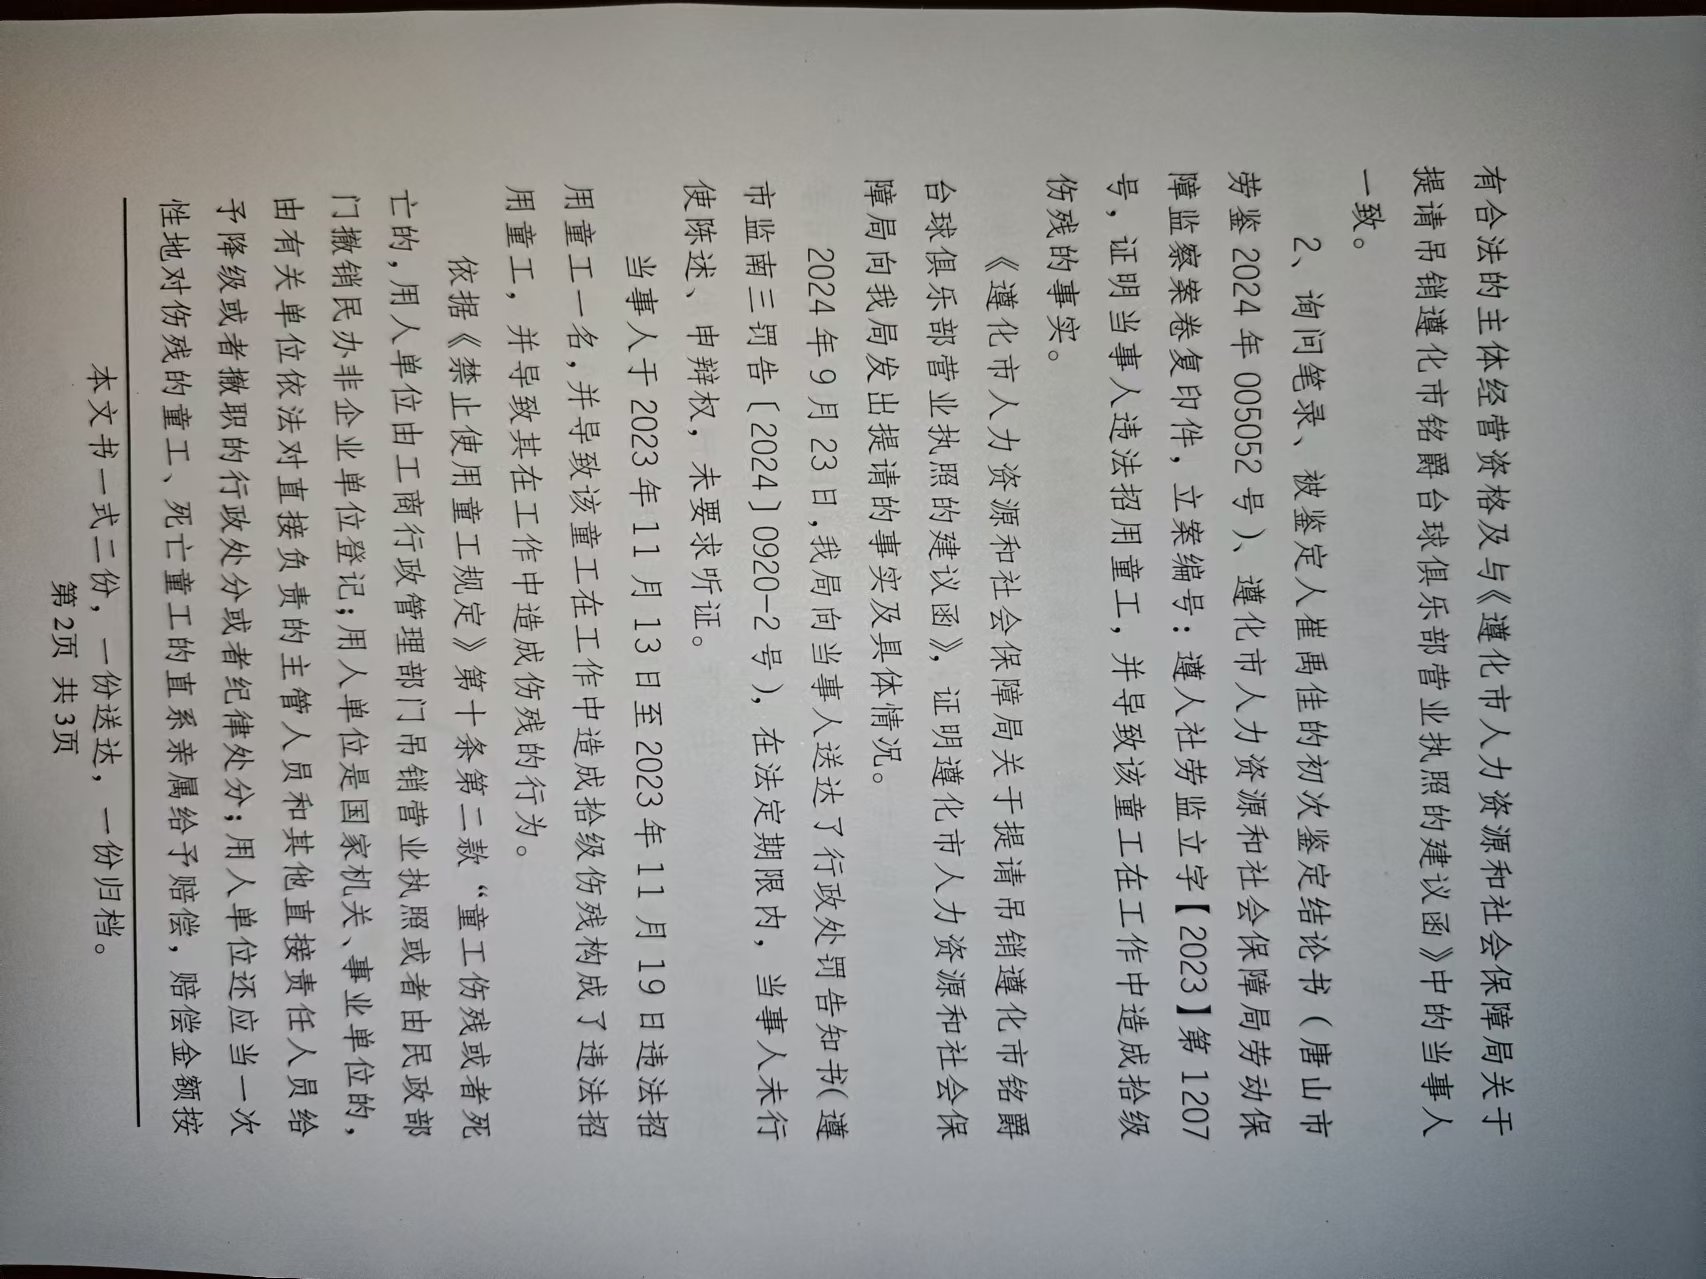 有合法的主体经营资格及与《遵化市人力资源和社会保障局关于
提请吊销遵化市铭爵台球俱乐部营业执照的建议函》中的当事人
一致。
2、询问笔录、被鉴定人崔禹佳的初次鉴定结论书（唐山市
劳鉴 2024 年 005052 号）、遵化市人力资源和社会保障局劳动保
障监察案卷复印件，立案编号：遵人社劳监立字【2023】第 1207
号，证明当事人违法招用童工，并导致该童工在工作中造成拾级
伤残的事实。
《遵化市人力资源和社会保障局关于提请吊销遵化市铭爵
台球俱乐部营业执照的建议函》，证明遵化市人力资源和社会保
障局向我局发出提请的事实及具体情况。
2024 年 9 月 23 日，我局向当事人送达了行政处罚告知书（遵
市监南三罚告〔2024〕0920-2 号），在法定期限内，当事人未行
使陈述、申辩权，未要求听证。
当事人于 2023 年 11 月 13 日至 2023 年 11 月 19 日违法招
用童工一名，并导致该童工在工作中造成拾级伤残构成了违法招
用童工，并导致其在工作中造成伤残的行为。
依据《禁止使用童工规定》第十条第二款“童工伤残或者死
亡的，用人单位由工商行政管理部门吊销营业执照或者由民政部
门撤销民办非企业单位登记；用人单位是国家机关、事业单位的，
由有关单位依法对直接负责的主管人员和其他直接责任人员给
予降级或者撤职的行政处分或者纪律处分；用人单位还应当一次
性地对伤残的童工、死亡童工的直系亲属给予赔偿，赔偿金额按
本文书一式二份，一份送达，一份归档。
第 2页 共 3页